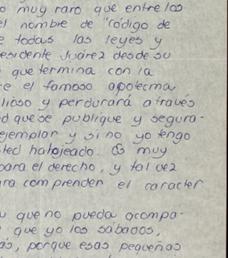 o muy raro que entre los
el nombre de "código de
e todas las leyes y
esidente Juárez desde su
que termina con la
e el famoso apotecma
lioso y perdurará a través
d que se publique y segura-
ejemplar y si no yo tengo
ted halojeado. Es muy
para el derecho, y tal vez
ra comprender el caracter
u que no pueda acompa-
que yo los sabados,
as, porque esas pequeñas